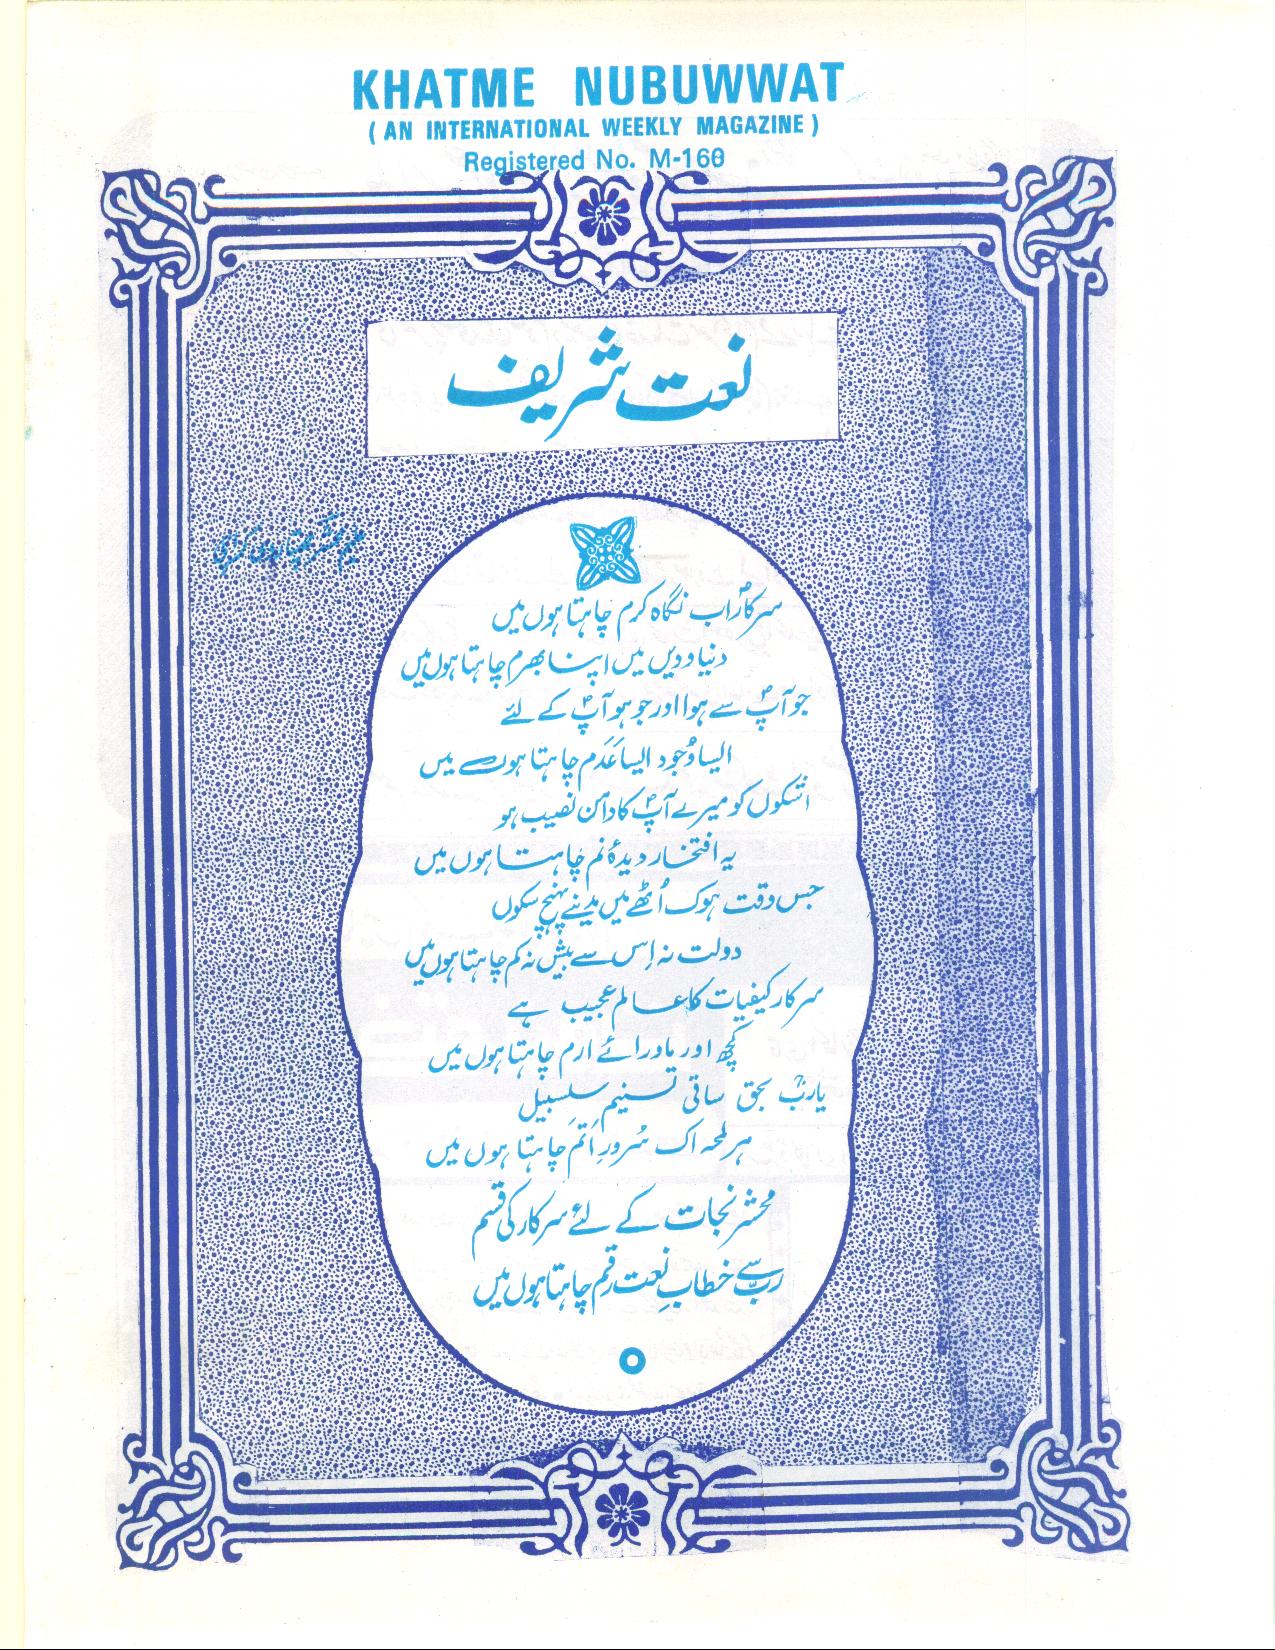 KHATME NUBUWWAT
( AN INTERNATIONAL WEEKLY MAGAZINE )
Registered No. M-160
نعت شریف
سرکارؐ اب نگاہ کرم چاہتا ہوں میں
دنیا و دیں میں اپنا بھرم چاہتا ہوں میں
جو آپؐ سے ہوا اور جو ہو آپؐ کے لئے
ایسا وُجود ایسا عَدَم چاہتا ہوں میں
اشکوں کو میرے آپؐ کا دامن نصیب ہو
یہ افتخار دیدۂ نم چاہتا ہوں میں
جس وقت ہوک اُٹھے میں مدینے پہنچ سکوں
دولت نہ اِس سے بیش نہ کم چاہتا ہوں میں
سرکار کیفیات کا عالم عجیب ہے
کچھ اور ماورائے ارم چاہتا ہوں میں
یاربّ بحق ساقی تسنیم سلسبیل
ہر لمحہ اک سُرورِ اَتَم چاہتا ہوں میں
محشر نجات کے لئے سرکار کی قسم
ربّ سے خطابِ نعت رقم چاہتا ہوں میں